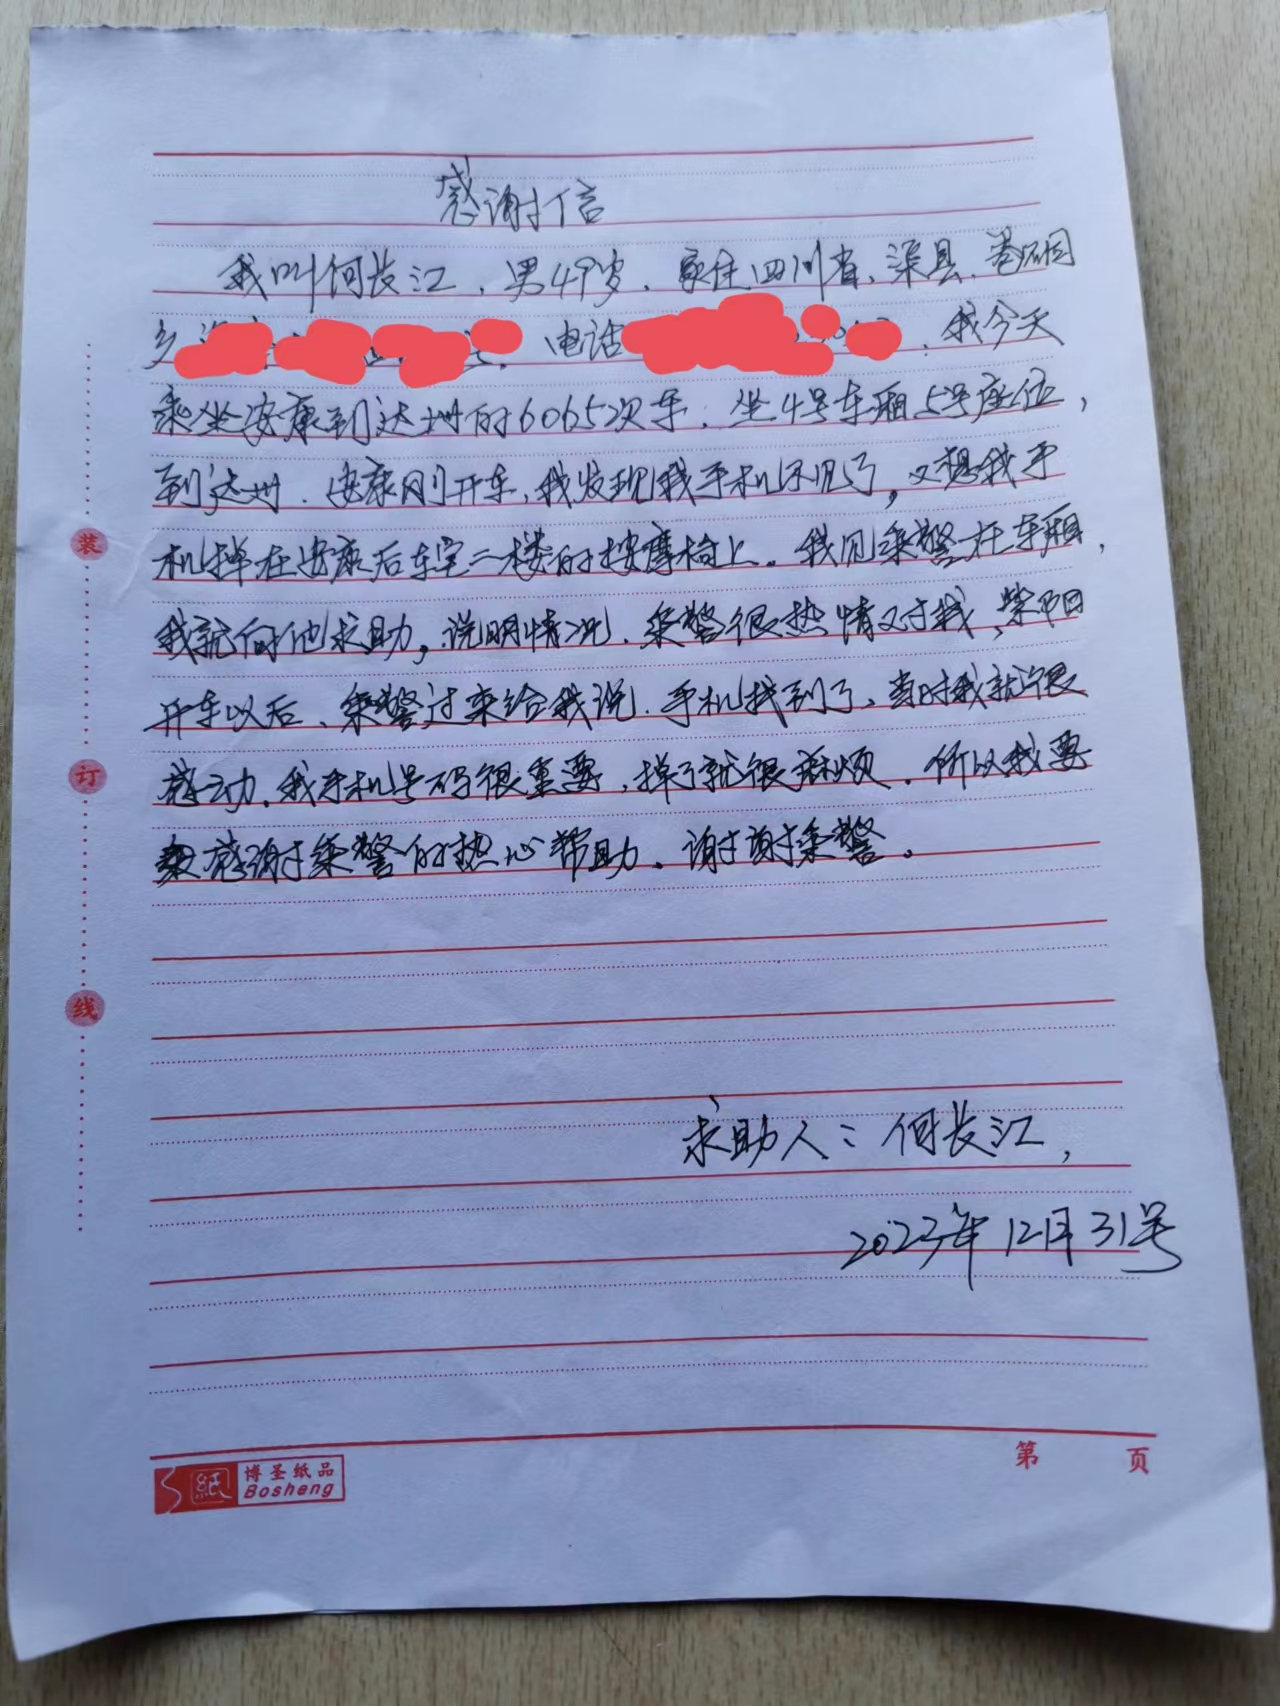 感谢信
我叫何长江、男49岁、家住四川省、渠县、
乡 电话 、我今天
乘坐安康到达州的6065次车、坐4号车厢5号座位,
到达州、安康刚开车,我发现我手机不见了,又想我手
机掉在安康后车室二楼的按摩椅上。我见乘警在车厢,
我就向他求助,说明情况、乘警很热情对我、紫阳
开车以后、乘警过来给我说、手机找到了、当时我就很
感动、我手机号码很重要,掉了就很麻烦、所以我要
感谢乘警的热心帮助、谢谢乘警。
求助人:何长江,
2023年12月31号
装
订
线
紙
博圣纸品
Bosheng
第 页